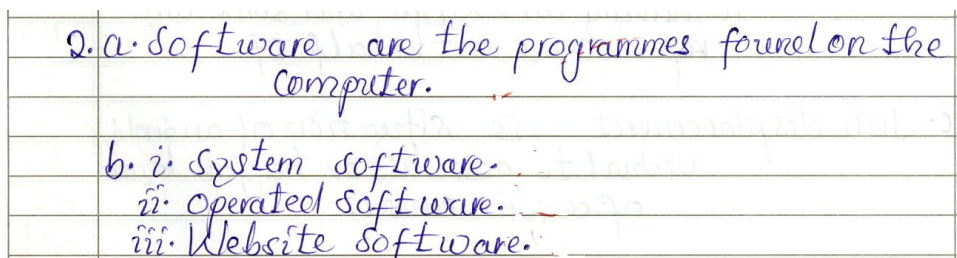 2. a. Software are the programmes found on the
computer.
b. i. System software.
ii. Operated software.
iii. Website software.